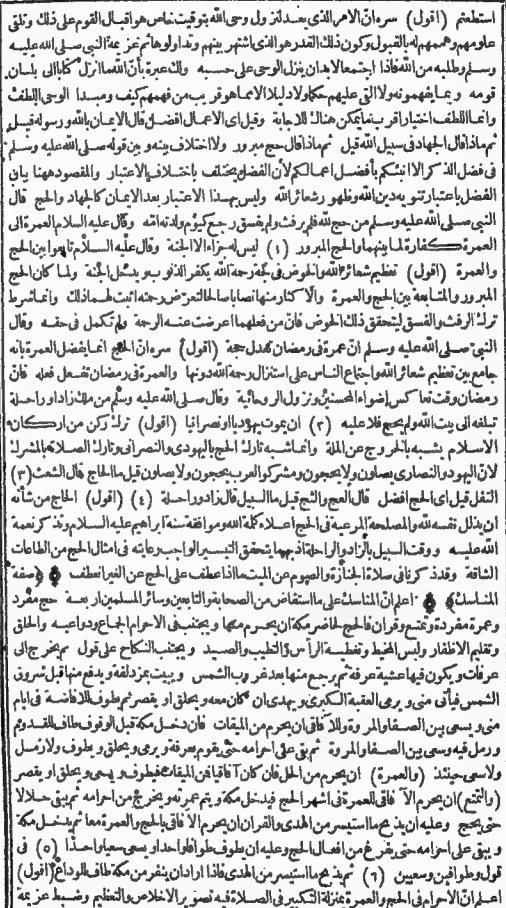 استطعتم (أقول) سره ان الامر الذي يعد لنزول وحي الله بتوقيت خاص هو اقبال القوم على ذلك وتلقي
علومهم وهممهم له بالقبول وكون ذلك القدر هو الذي اشتهر بينهم وتداولوها ثم عزيمة النبي صلى الله عليه
وسلم وطلبه من الله فاذا اجتمعا لابد ان ينزل الوحي على حسبه ولك عبرة بان الله ما انزل كتابا الى بلسان
قومه وبما يفهمونه ولا القى عليهم حكما ولا دليلا الا مما هو قريب من فهمهم كيف ومبدا الوحي اللطف
وانما اللطف اختيار اقرب ما يمكن هنالك للاجابة وقيل اي الاعمال افضل قال الايمان بالله ورسوله قيل
ثم ماذا قال الجهاد في سبيل الله قيل ثم ماذا قال حج مبرور ولا اختلاف بينه وبين قوله صلى الله عليه وسلم
في فضل الذكر الا انبئكم بأفضل اعمالكم لأن الفضل يختلف باختلاف الاعتبار والمقصود ههنا بيان
الفضل باعتبار تنويه دين الله وظهور شعائر الله وليس بهذا الاعتبار بعد الايمان كالجهاد والحج قال
النبي صلى الله عليه وسلم من حج لله فلم يرفث ولم يفسق رجع كيوم ولدته امه وقال عليه السلام العمرة الى
العمرة كفارة لما بينهما والحج المبرور (١) ليس له جزاء الا الجنة وقال عليه السلام تابعوا بين الحج
والعمرة (أقول) تعظيم شعائر الله والخوض في لجة رحمة الله يكفر الذنوب ويدخل الجنة ولما كان الحج
المبرور والمتابعة بين الحج والعمرة والاكثار منها نصابا صالحا لتعرض رحمته اثبت لهما ذلك وانما شرط
ترك الرفث والفسق ليتحقق ذلك الخوض فان من فعلهما اعرضت عنه الرحمة ولم تكمل في حقه وقال
النبي صلى الله عليه وسلم ان عمرة في رمضان تعدل حجة (أقول) سره ان الحج انما يفضل العمرة بأنه
جامع بين تعظيم شعائر الله واجتماع الناس على استنزال رحمة الله دونها والعمرة في رمضان تفعل فعله فان
رمضان وقت تعاكس اضواء المحسنين ونزول الروحانية وقال صلى الله عليه وسلم من ملك زادا وراحلة
تبلغه الى بيت الله ولم يحج فلا عليه (٢) ان يموت يهوديا او نصرانيا (أقول) ترك ركن من اركان
الاسلام يشبه بالخروج عن الملة وانما شبه تارك الحج باليهودي والنصراني وتارك الصلاة بالمشرك
لان اليهود والنصارى يصلون ولا يحجون ومشركو العرب يحجون ولا يصلون قيل ما الحاج قال الشعث (٣)
التفل قيل اي الحج افضل قال العج والثج قيل ما السبيل قال زاد وراحلة (٤) (أقول) الحاج من شأنه
ان يذلل نفسه لله والمصلحة المرعية في الحج اعلاء كلمة الله وموافقة سنة ابراهيم عليه السلام وتذكر نعمة
الله عليه ووقت السبيل بالزاد والراحلة اذ بهما يتحقق التيسير الواجب رعايته في امثال الحج من الطاعات
الشاقة وقد ذكرنا في صلاة الجنازة والصوم عن الميت ما اذا عطف على الحج عن الغير انعطف (صفة
المناسك) اعلم ان المناسك على ما استفاض من الصحابة والتابعين وسائر المسلمين اربعة حج مفرد
وعمرة مفردة وتمتع وقران فالحج لحاضر مكة ان يحرم منها ويجتنب في الاحرام الجماع ودواعيه والحلق
وتقليم الاظفار ولبس المخيط وتغطية الرأس والتطيب والصيد ويجتنب النكاح على قول ثم يخرج الى
عرفات ويكون فيها عشية عرفة ثم يرجع منها بعد غروب الشمس ويبيت بمزدلفة ويدفع منها قبل شروق
الشمس فيأتي منى ويرمي العقبة الكبرى ويهدي ان كان معه ويحلق او يقصر ثم يطوف للافاضة في ايام
منى ويسعى بين الصفا والمروة وللآفاقي ان يحرم من الميقات فان دخل مكة قبل الوقوف طاف للقدوم
ورمل فيه وسعى بين الصفا والمروة ثم بقي على احرامه حتى يقوم بعرفة ويرمي ويحلق ويطوف ولا رمل
ولا سعي حينئذ (والعمرة) ان يحرم من الحل فان كان آفاقيا فمن الميقات فيطوف ويسعى ويحلق او يقصر
(والتمتع) ان يحرم الآفاقي للعمرة في اشهر الحج فيدخل مكة ويتم عمرته ويخرج من احرامه ثم يبقى حلالا
حتى يحج وعليه ان يذبح ما استيسر من الهدي والقران ان يحرم الآفاقي بالحج والعمرة معا ثم يدخل مكة
ويبقى على احرامه حتى يفرغ من افعال الحج وعليه ان يطوف طوافا واحدا ويسعى سعيا واحدا (٥) في
قول وطوافين وسعيين (٦) ثم يذبح ما استيسر من الهدي فاذا اراد ان ينفر من مكة طاف للوداع (أقول)
اعلم ان الاحرام في الحج والعمرة بمنزلة التكبير في الصلاة فيه تصوير الاخلاص والتعظيم وضبط عزيمة